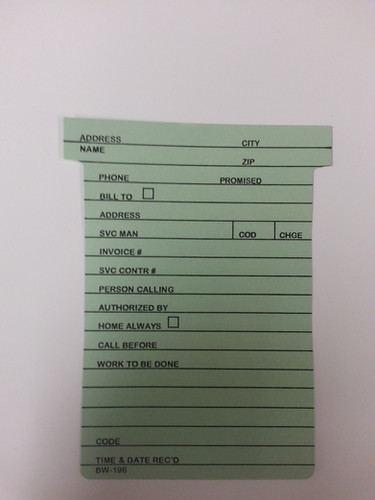 ADDRESS CITY
NAME
ZIP
PHONE PROMISED
BILL TO
ADDRESS
SVC MAN COD CHGE
INVOICE #
SVC CONTR #
PERSON CALLING
AUTHORIZED BY
HOME ALWAYS
CALL BEFORE
WORK TO BE DONE
CODE
TIME & DATE REC'D
BW-196